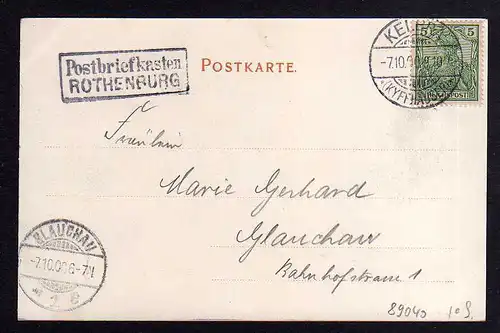 Postbriefkasten
ROTHENBURG
POSTKARTE.
KELBRA
-7.10.00
(KYFFH
5 5
POST
Fräulein
Marie Gerhard
Glauchau
Bahnhofstrasse 1
GLAUCHAU
-7.10.00 6-7N
89040